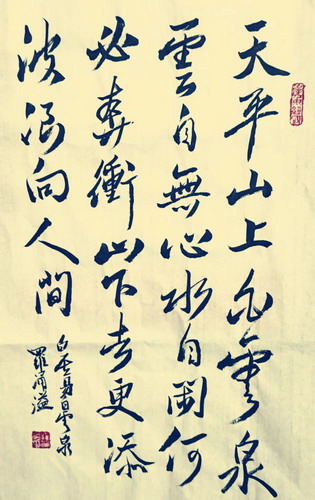 天平山上白雲泉
雲自無心水自閑何
必奔衝山下去更添
波浪向人間
白居易白雲泉
羅溢